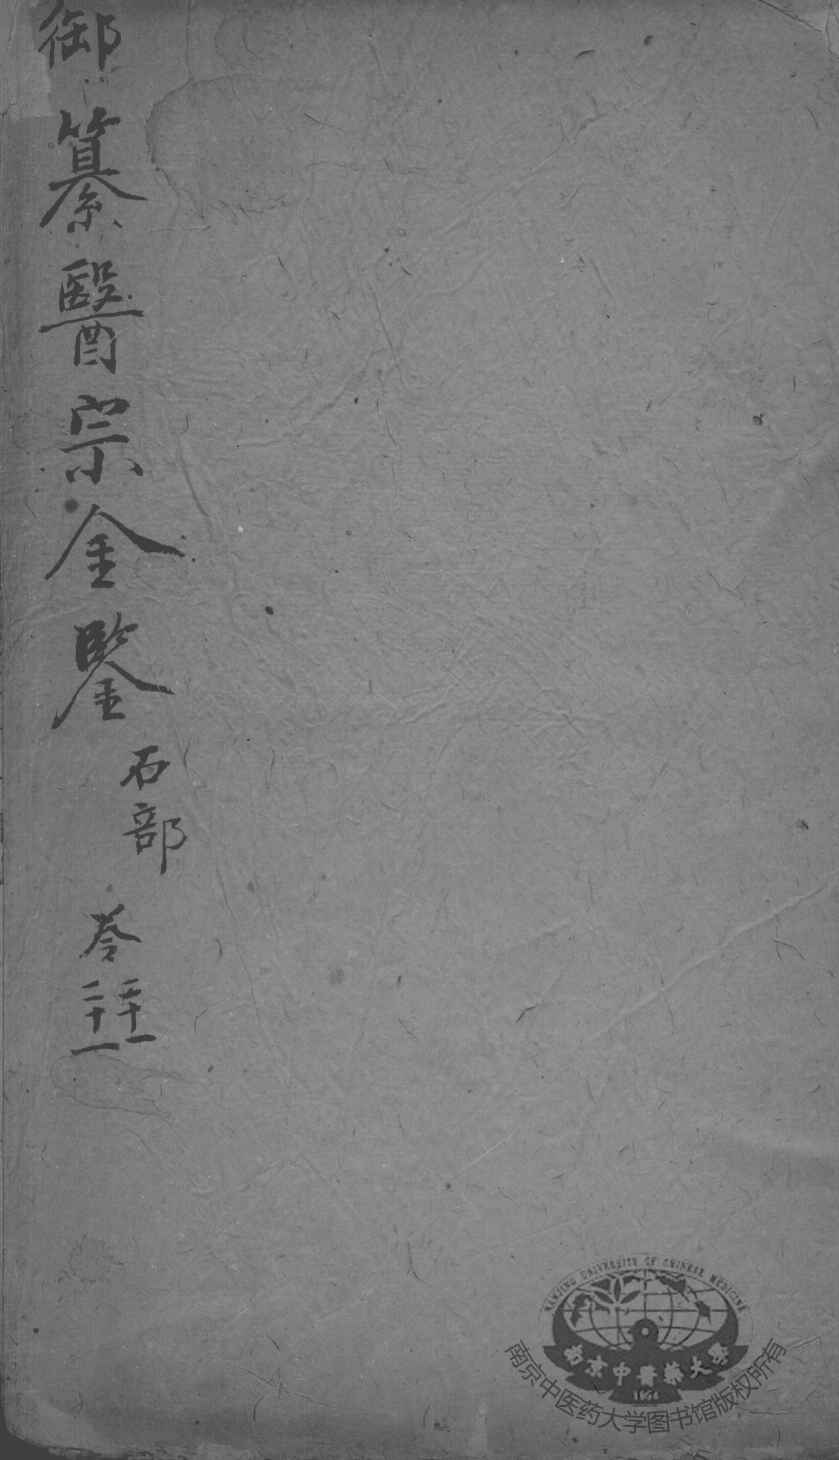 御纂醫宗金鑒
石部
卷
二十一
二十一
NANJING UNIVERSITY OF CHINESE MEDICINE
南京中醫藥大學
1954
南京中医药大学图书馆版权所有